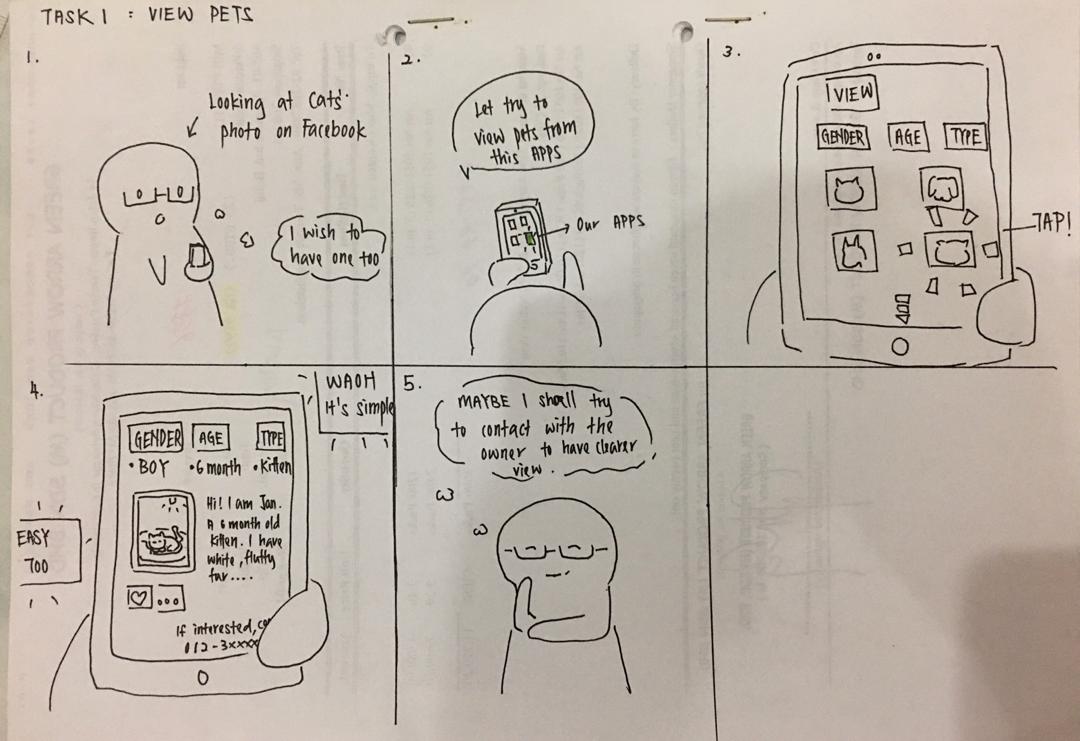 TASK 1 : VIEW PETS
1.
Looking at Cats'
photo on Facebook
I wish to
have one too
2.
Let try to
view pets from
this APPS
Our APPS
3.
VIEW
GENDER AGE TYPE
TAP!
4.
WAOH
It's simple
GENDER AGE TYPE
• BOY • 6 month • Kitten
Hi! I am Jan.
A 6 month old
Kitten. I have
white, fluffy
fur....
EASY
TOO
If interested, co
012-3xxxx
5.
MAYBE I shall try
to contact with the
owner to have clearer
view.